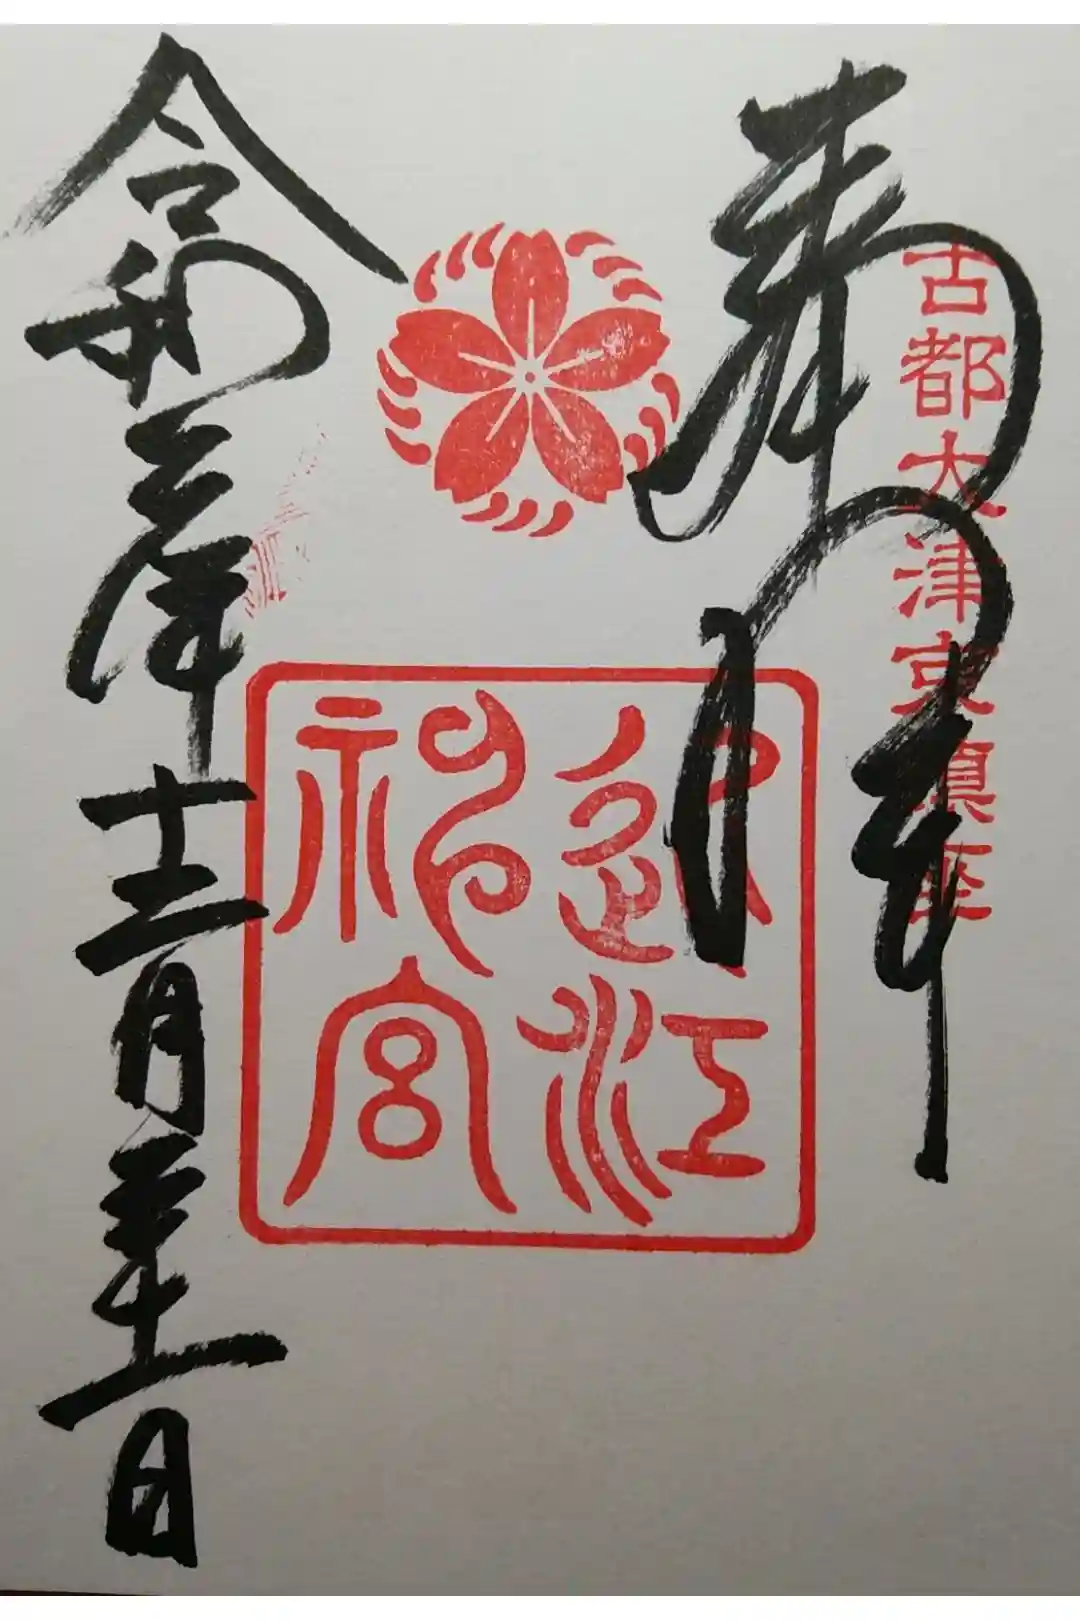 奉拝
古都大津京鎮座
近江
神宮
令和三年十二月三十一日